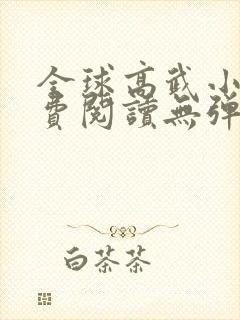 全球高武小
費閱讀無彈
白茶茶